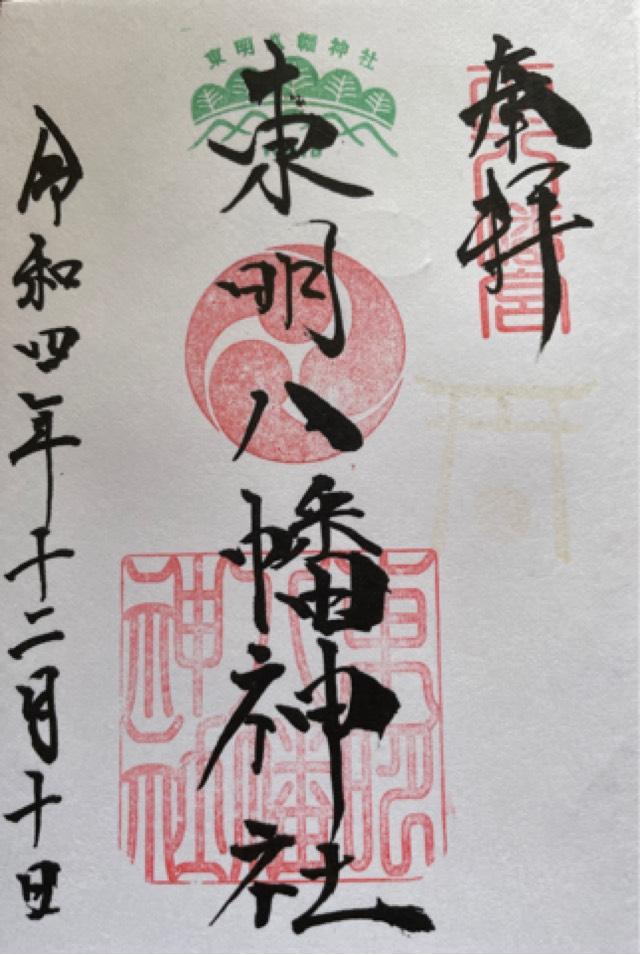 奉拝
東明八幡神社
東明八幡神社
令和四年十二月十日
東明八幡神社